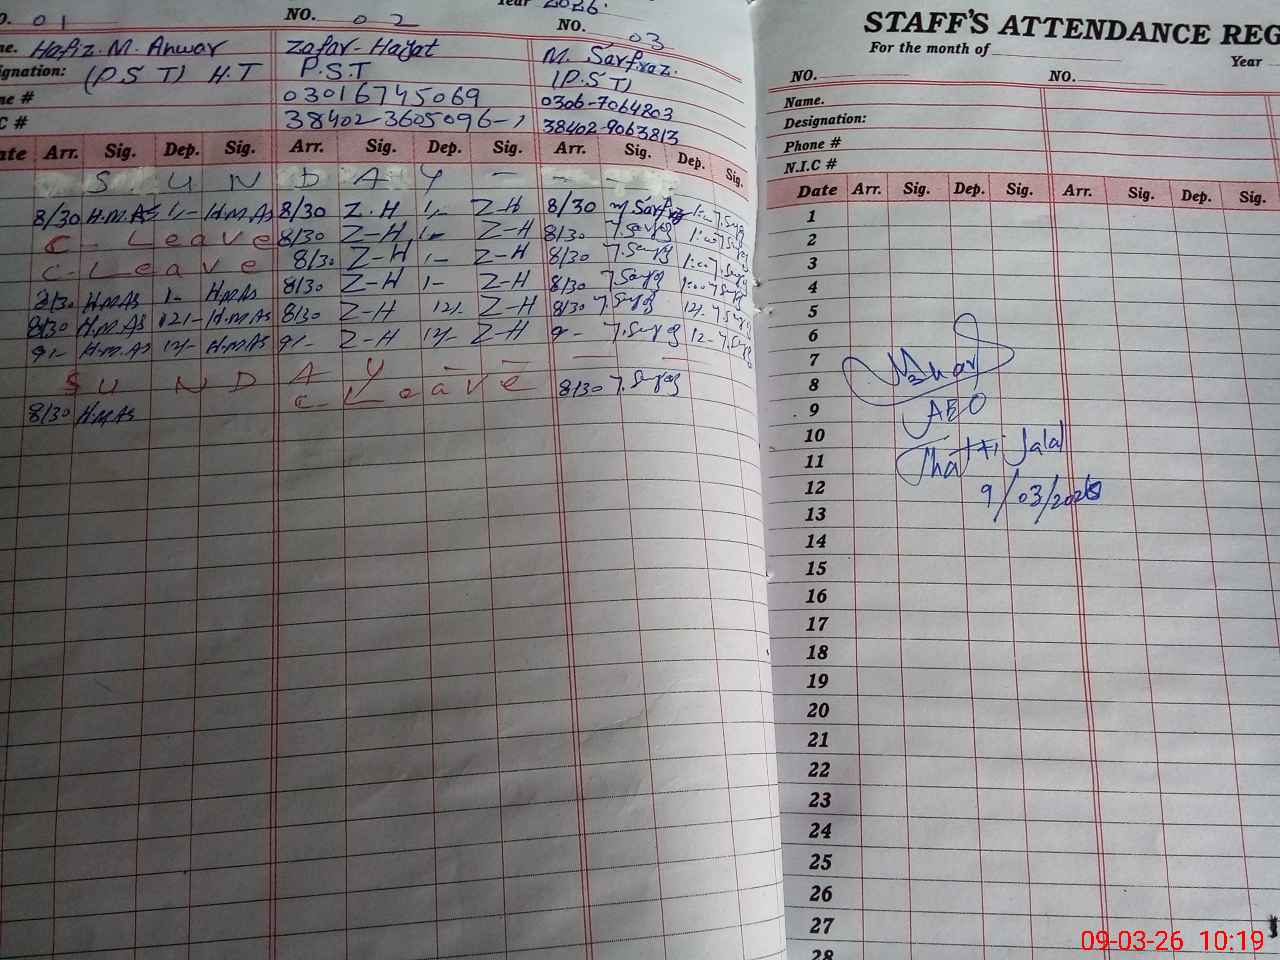 Year 2026.
O. 01 NO. 02 NO. 03
ne. Hafiz. M. Anwar Zafar-Hayat M. Sarfraz.
gnation: (P.S.T) H.T P.S.T (P.S.T)
ne # 03016745069 0306-7064803
C # 38402-3605096-1 38402-9063813
ate Arr. Sig. Dep. Sig. Arr. Sig. Dep. Sig. Arr. Sig. Dep. Sig.
S U N D A Y - - -
8/30 H.M.As 1- H.M.As 8/30 Z.H 1- Z-H 8/30 1:00
C- Leave 8/30 Z-H 1- Z-H 8/30 1:00
C-Leave 8/30 Z-H 1- Z-H 8/30 1:00
8/30 H.M.As 1- H.M.As 8/30 Z-H 1- Z-H 8/30 1:00
8/30 H.M.As 12/- H.M.As 8/30 Z-H 12/- Z-H 8/30 12/-
9/- H.M.As 12/- H.M.As 9/- Z-H 12/- Z-H 9- 12-
S U N D A Y - - - -
8/30 H.M.As C- Leave 8/30
STAFF'S ATTENDANCE REG
For the month of Year
NO. NO.
Name.
Designation:
Phone #
N.I.C #
Date Arr. Sig. Dep. Sig. Arr. Sig. Dep. Sig.
1
2
3
4
5
6
7
8
9
10
11
12
13
14
15
16
17
18
19
20
21
22
23
24
25
26
27
28
AEO
Thatti Jalal
9/03/2026
09-03-26 10:19